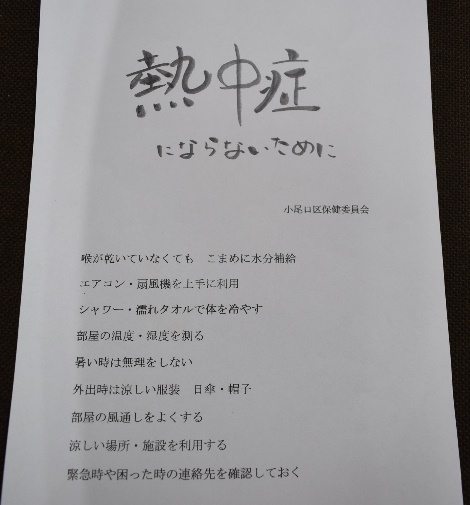 熱中症
にならないために
小尾口区保健委員会
喉が乾いていなくても　こまめに水分補給
エアコン・扇風機を上手に利用
シャワー・濡れタオルで体を冷やす
部屋の温度・湿度を測る
暑い時は無理をしない
外出時は涼しい服装　日傘・帽子
部屋の風通しをよくする
涼しい場所・施設を利用する
緊急時や困った時の連絡先を確認しておく